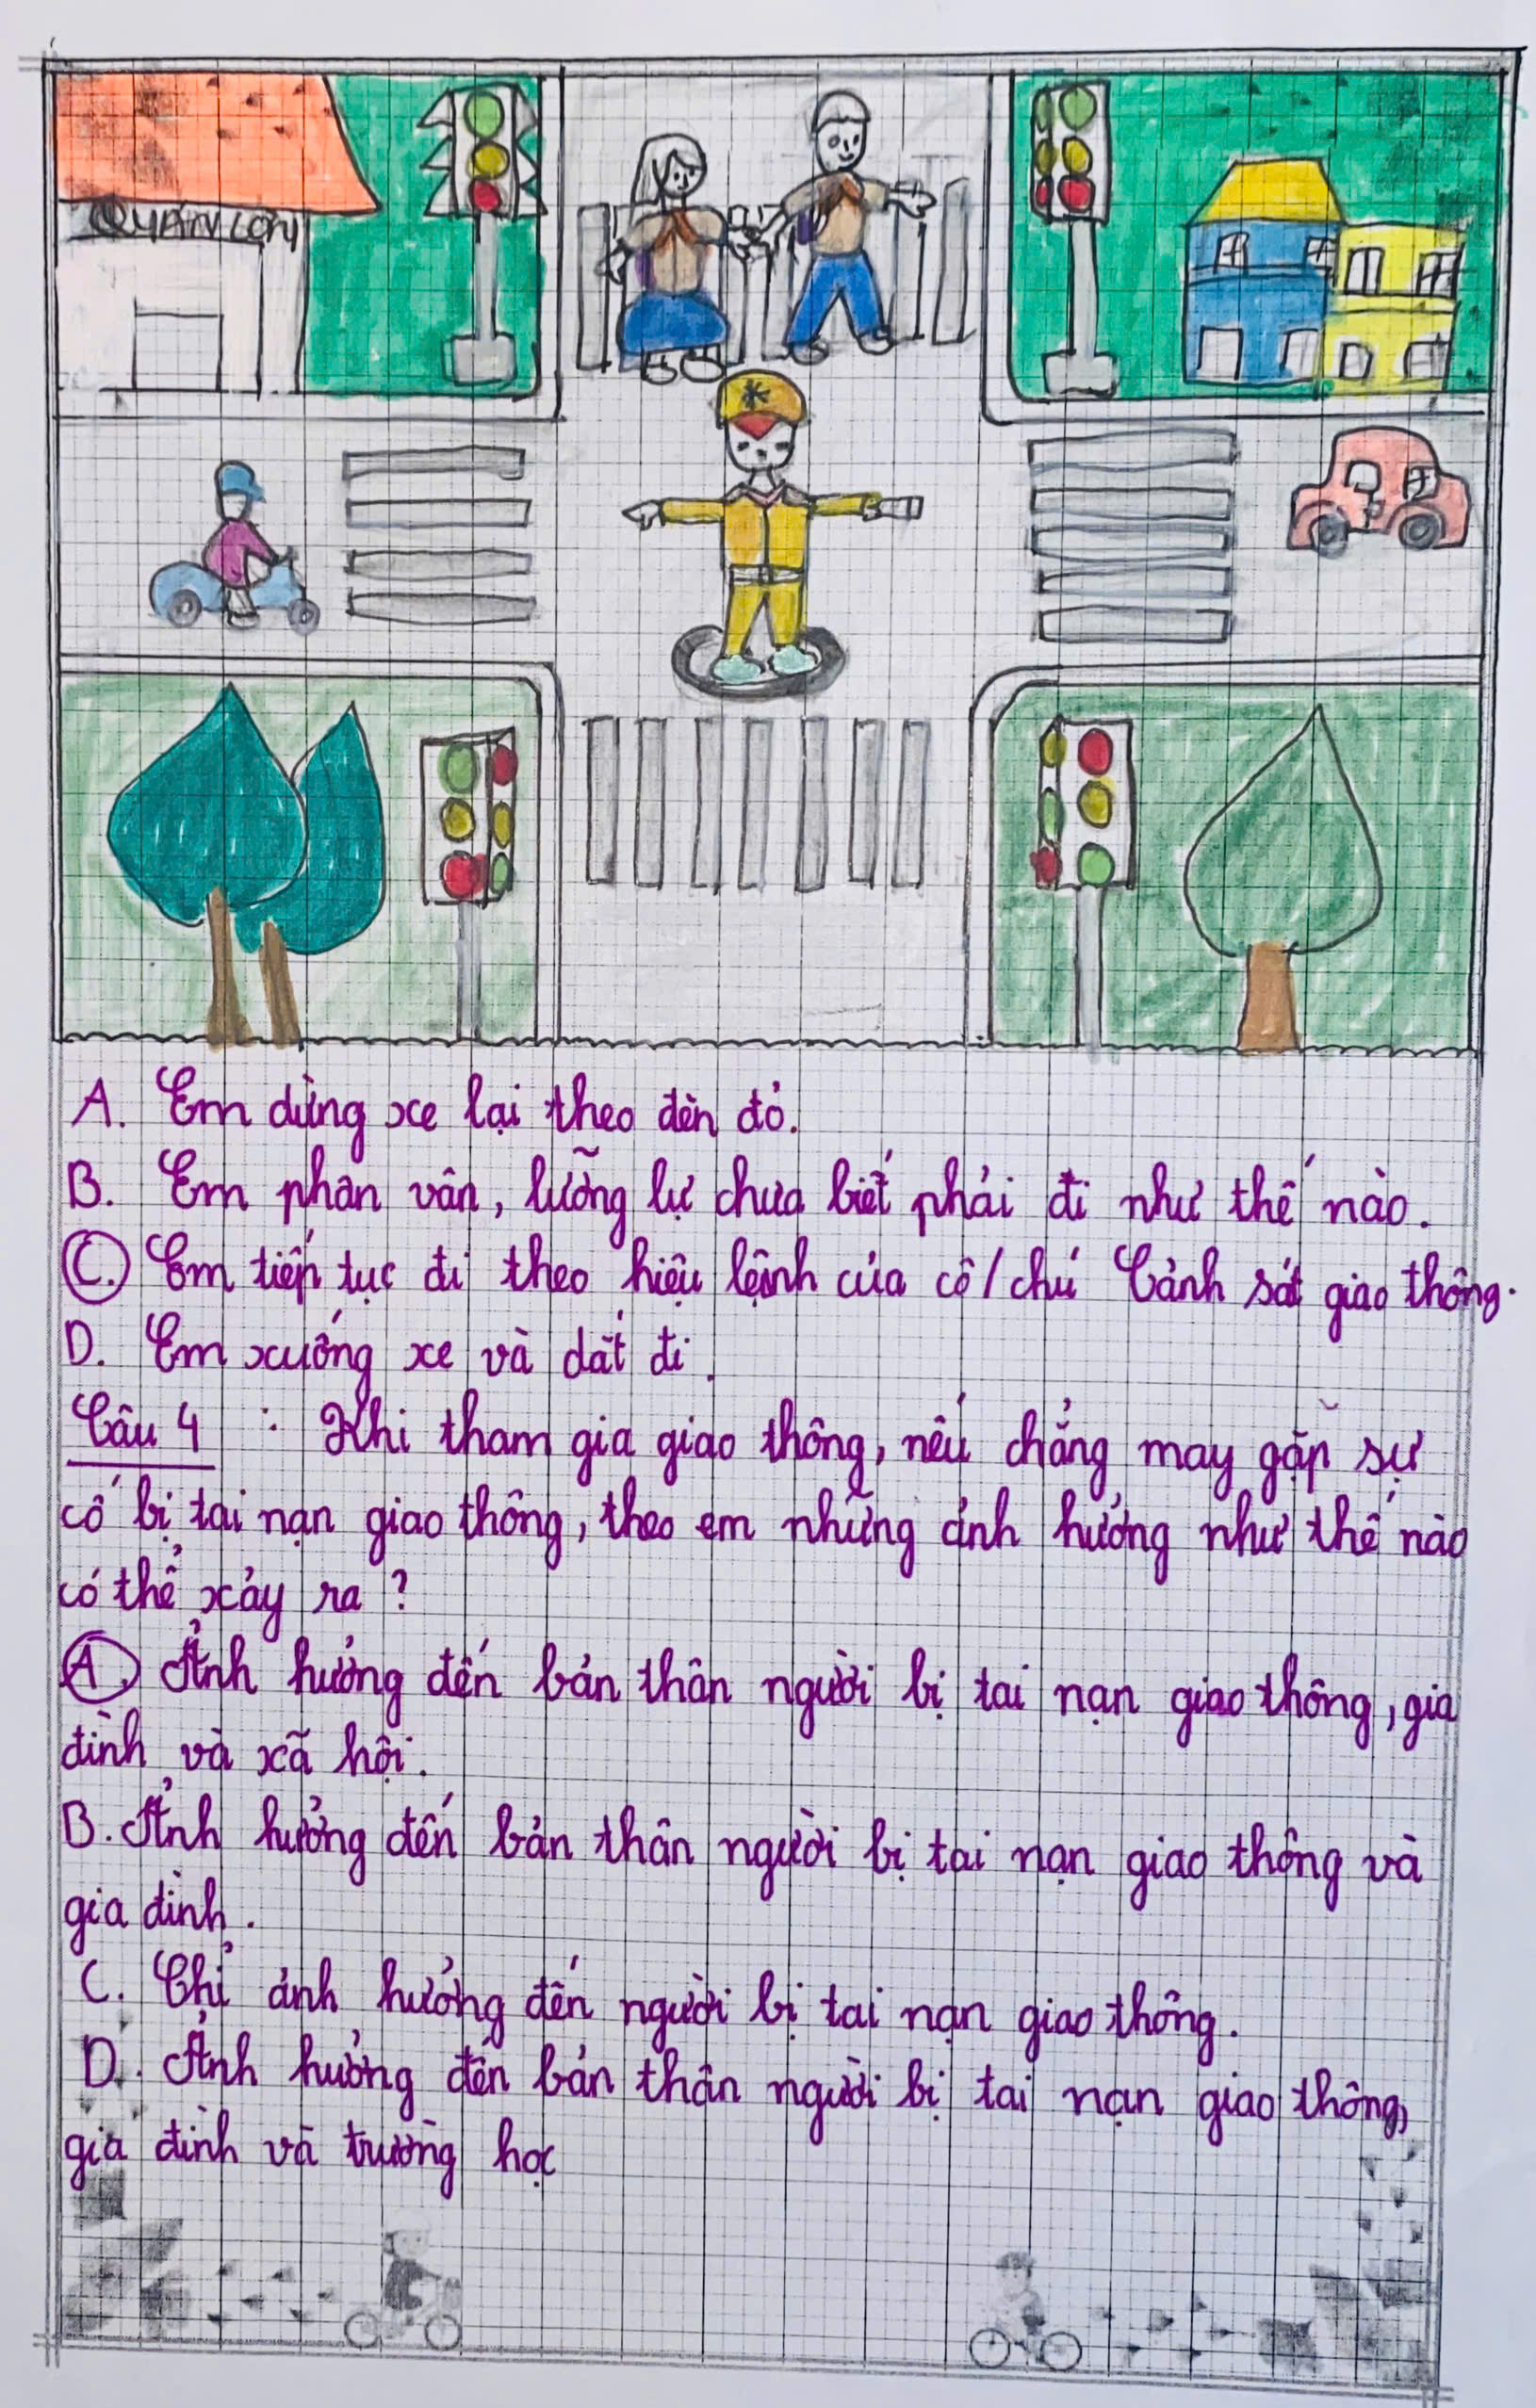 QUÁN CƠM
A. Em dừng xe lại theo đèn đỏ.
B. Em phân vân, lưỡng lự chưa biết phải đi như thế nào.
C. Em tiếp tục đi theo hiệu lệnh của cô/chú Cảnh sát giao thông.
D. Em xuống xe và dắt đi.
Câu 4 : Khi tham gia giao thông, nếu chẳng may gặp sự
cố bị tai nạn giao thông, theo em những ảnh hưởng như thế nào
có thể xảy ra ?
A. Ảnh hưởng đến bản thân người bị tai nạn giao thông, gia
đình và xã hội.
B. Ảnh hưởng đến bản thân người bị tai nạn giao thông và
gia đình.
C. Chỉ ảnh hưởng đến người bị tai nạn giao thông.
D. Ảnh hưởng đến bản thân người bị tai nạn giao thông,
gia đình và trường học